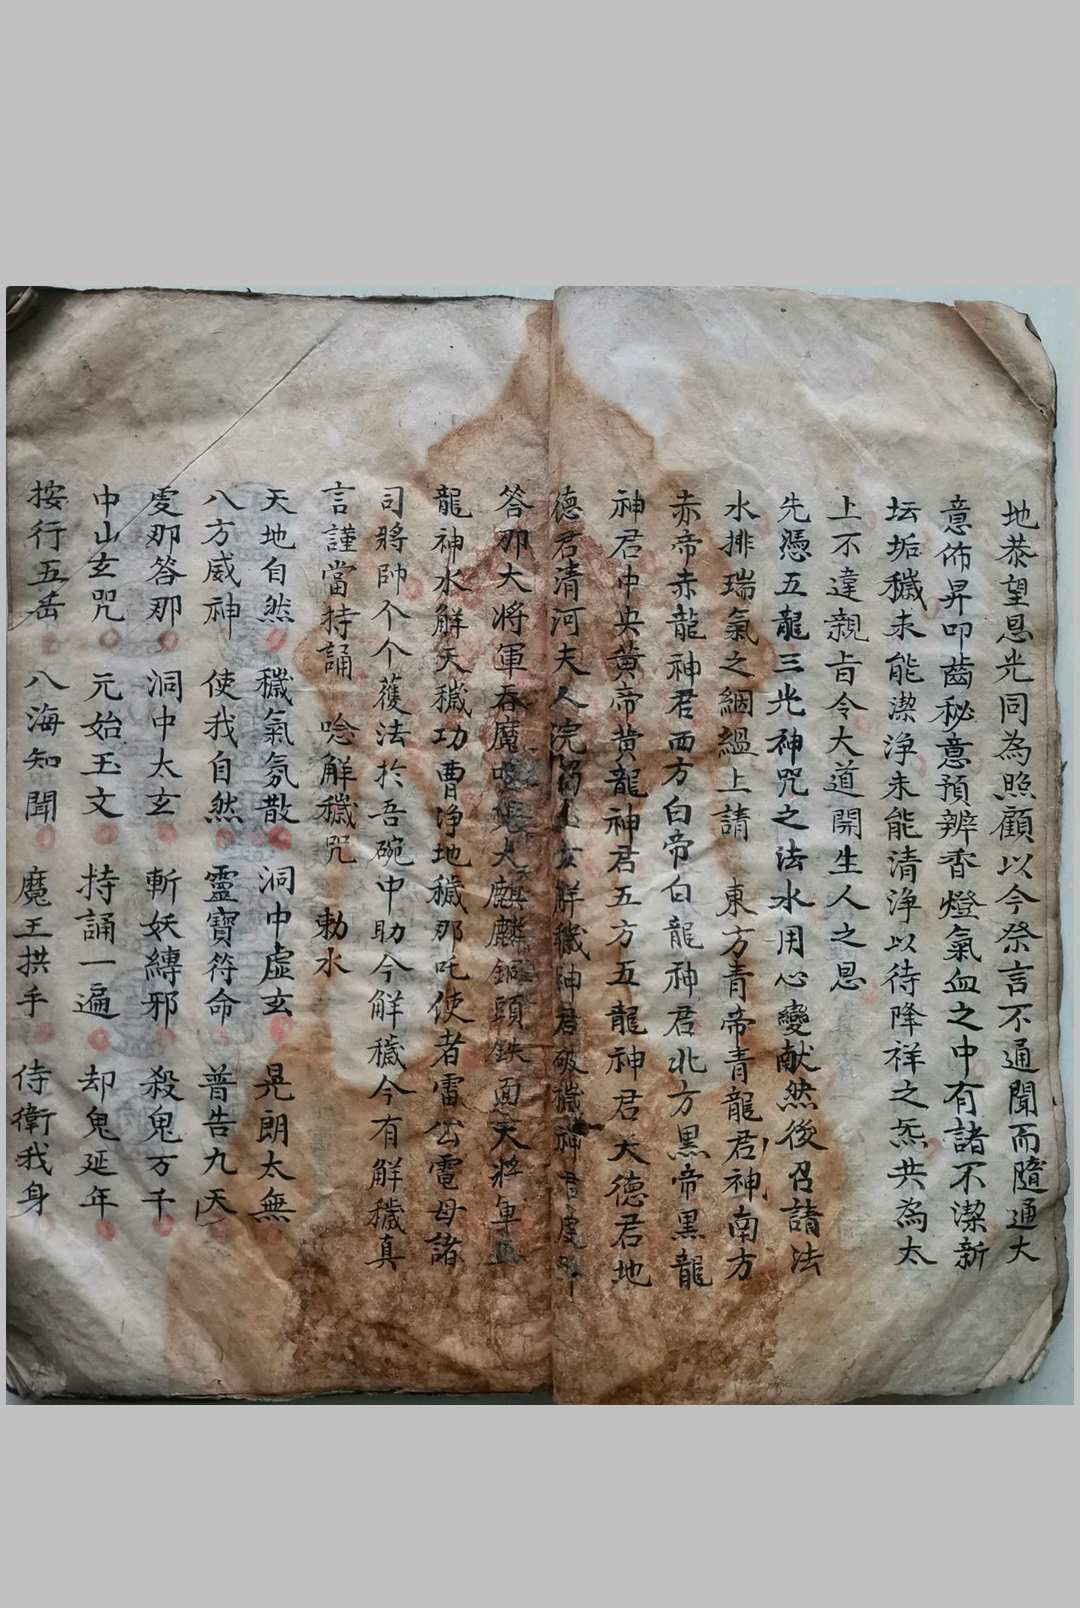 地恭望恩光同為照顧以今祭言不通聞而隨通大
意佈昇叩齒秘意預辨香燈氣血之中有諸不潔新
坛垢穢未能潔淨未能清淨以待降祥之炁共為太
上不違親旨令大道開生人之恩
先憑五龍三光神咒之法水用心變献然後召請法
水排瑞氣之絪緼上請 東方青帝青龍君神南方
赤帝赤龍神君西方白帝白龍神君北方黑帝黑龍
神君中央黄帝黄龍神君五方五龍神君天德君地
德君清河夫人浣 玄解穢神君破穢神君
答那大將軍吞魔 犬麒麟銅頭鉄面大將軍
龍神水解天穢功曹净地穢那吒使者雷公電母諸
司將帥个个蒦法於吾碗中助今解穢今有解穢真
言謹當持誦 唸解穢咒 勅水
天地自然 穢氣氛散 洞中虛玄 晃朗太無
八方威神 使我自然 靈寶符命 普告九天
虔那答那 洞中太玄 斬妖縛邪 殺鬼万千
中山玄咒 元始玉文 持誦一遍 却鬼延年
按行五岳 八海知聞 魔王拱手 侍衛我身